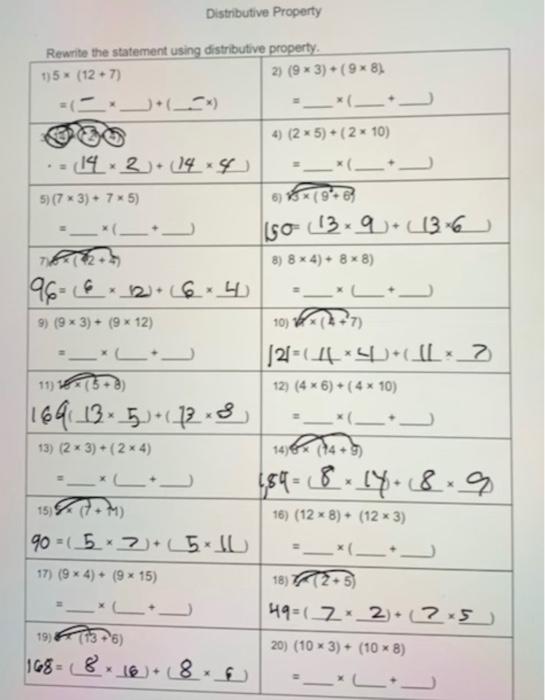 Distributive Property
Rewrite the statement using distributive property.
1) 5 × (12 + 7)
= (__ × __) + (__ × )
2) (9 × 3) + ( 9 × 8)
= __ × (__ + __)
= (14 × 2) + (14 × 4)
4) (2 × 5) + ( 2 × 10)
= __ × (__ + __)
5) (7 × 3) + 7 × 5)
= __ × (__ + __)
6) 13 × ( 9 + 6)
150 = (13 × 9) + (13 × 6)
7) 6 × (12 + 4)
96 = (6 × 12) + (6 × 4)
8) 8 × 4) + 8 × 8)
= __ × (__ + __)
9) (9 × 3) + (9 × 12)
= __ × (__ + __)
10) 11 × (4 + 7)
121 = (11 × 4) + (11 × 7)
11) × (5 + 8)
169 (13 × 5) + (13 × 8)
12) (4 × 6) + ( 4 × 10)
= __ × (__ + __)
13) (2 × 3) + ( 2 × 4)
= __ × (__ + __)
14) 8 × (14 + 9)
= (8 × 14) + (8 × 9)
15) 5 × (7 + 11)
90 = (5 × 7) + (5 × 11)
16) (12 × 8) + (12 × 3)
= __ × (__ + __)
17) (9 × 4) + (9 × 15)
= __ × (__ + __)
18) 7 × (2 + 5)
49 = (7 × 2) + (7 × 5)
19) × (13 + 6)
168 = (8 × 16) + (8 × 6)
20) (10 × 3) + (10 × 8)
= __ × (__ + __)